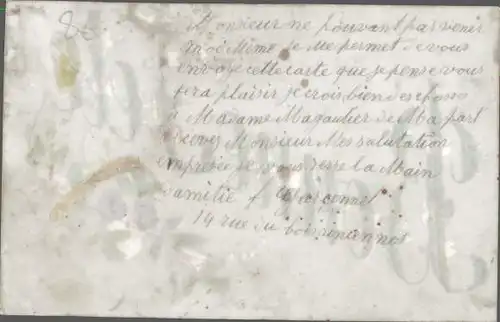 8
Monsieur ne pouvant pas venir
moi Même je me permet de vous
envoye cette carte que je pense vous
fera plaisir je crois bien des choses
a Madame de Ma part
recevez Monsieur Mes salutation
empresée je vous serre la Main
d'amitie f
19 rue du bois vincennes